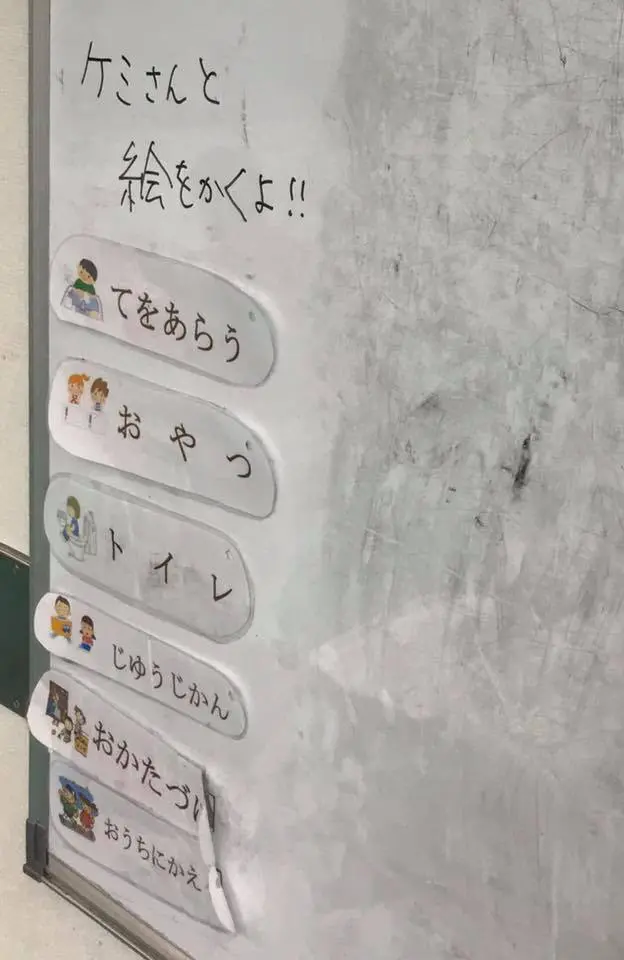 ケミさんと
絵をかくよ!!
てをあらう
おやつ
トイレ
じゆうじかん
おかたづけ
おうちにかえ